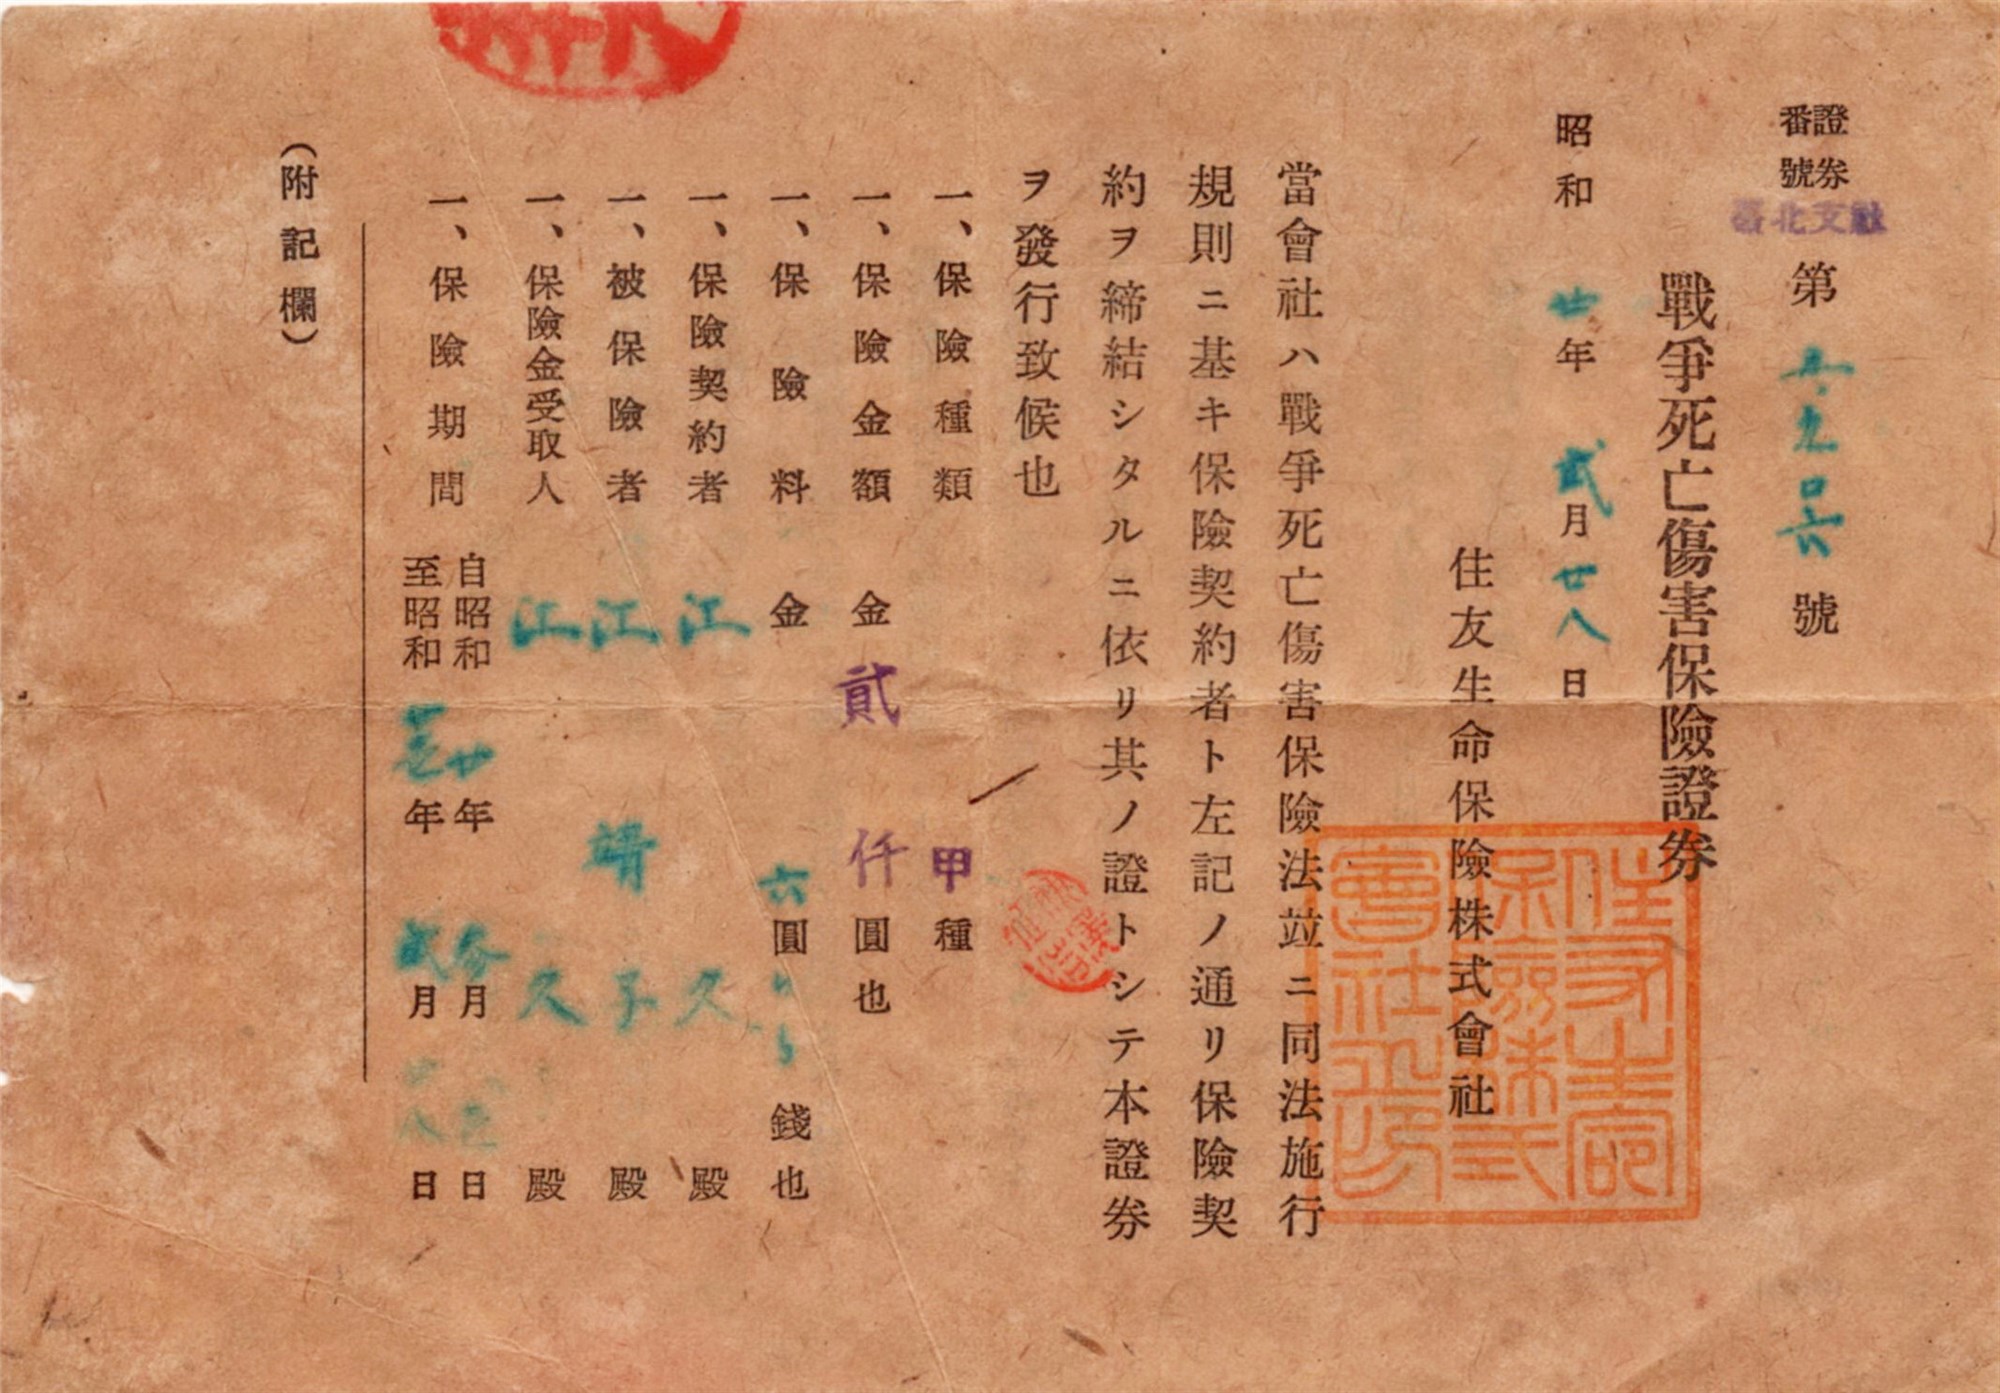 證券
番號
臺北支社
第 號
戰爭死亡傷害保險證券
昭和廿年貳月廿八日
住友生命保險株式會社
當會社ハ戰爭死亡傷害保險法竝ニ同法施行
規則ニ基キ保險契約者ト左記ノ通リ保險契
約ヲ締結シタルニ依リ其ノ證トシテ本證券
ヲ發行致候也
一、保險種類 甲種
一、保險金額 金貳仟圓也
一、保險料 金六圓 錢也
一、保險契約者 江 久 殿
一、被保險者 江 子 殿
一、保險金受取人 江 久 殿
一、保險期間 自昭和廿年參月 日
至昭和 年貳月廿八日
(附記欄)
住友生命
保險株式
會社